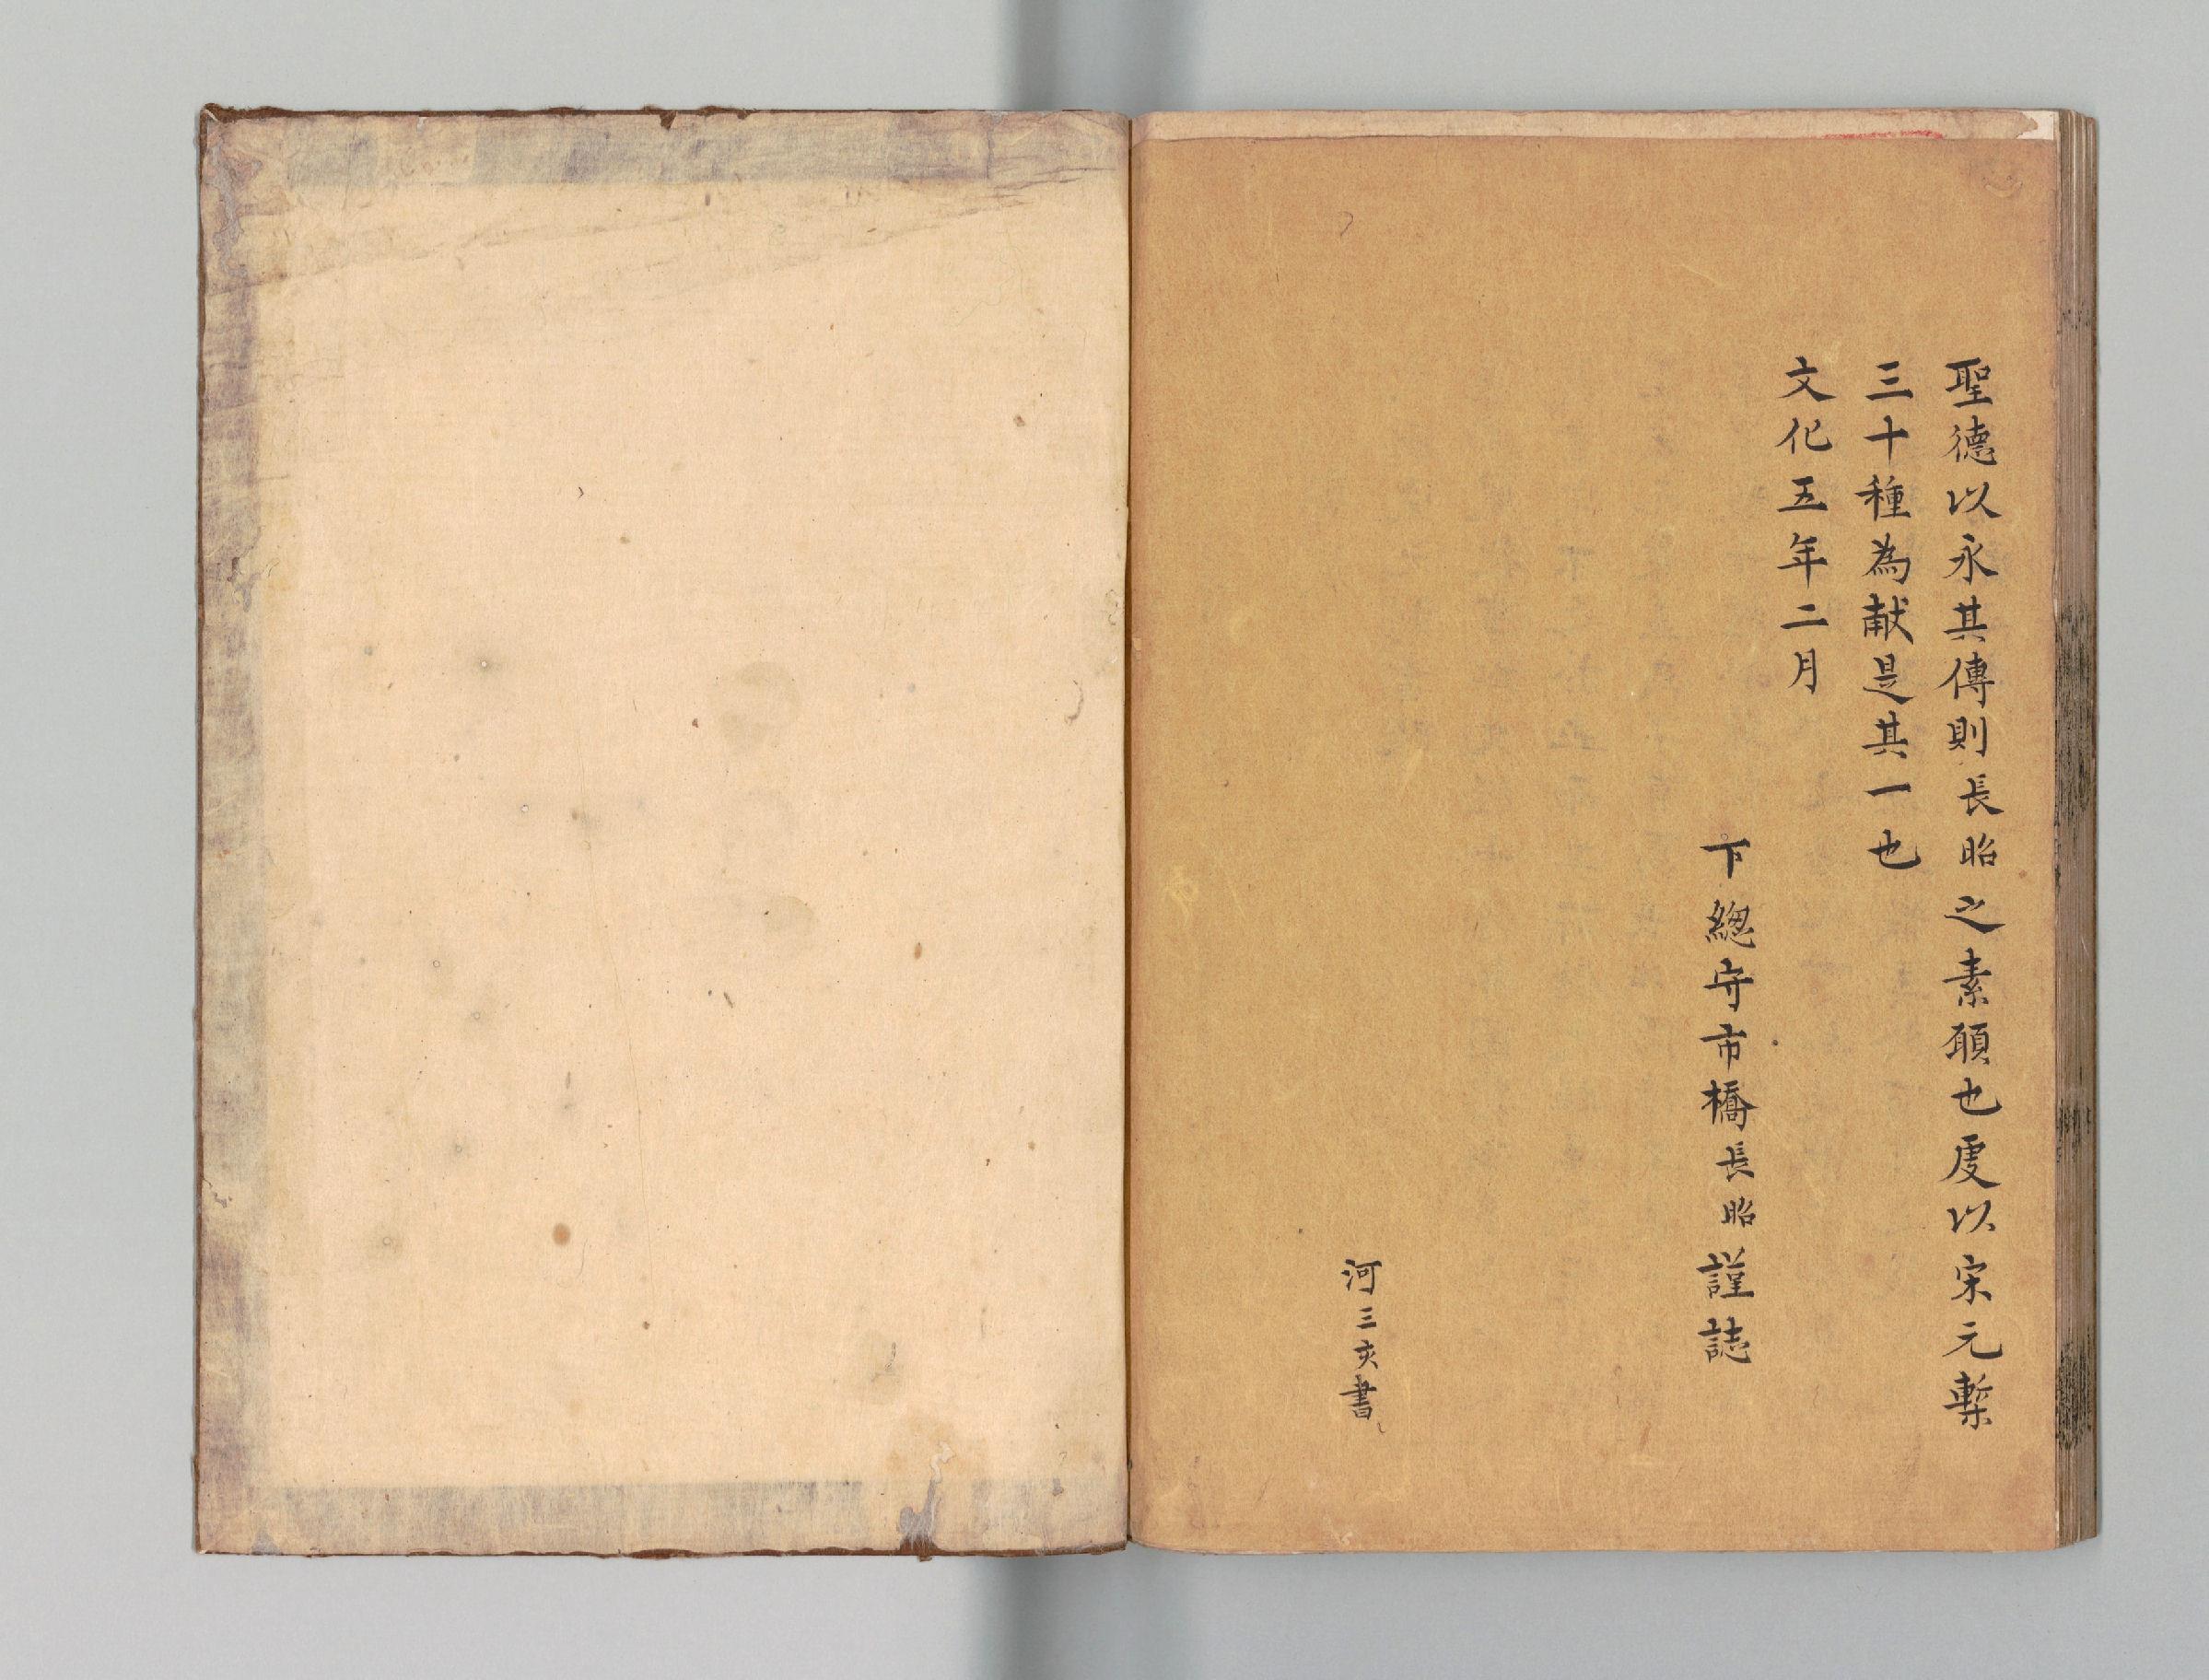 聖德以永其傳則長昭之素願也虔以宋元槧
三十種為献是其一也
文化五年二月
下總守市橋長昭謹誌
河三亥書